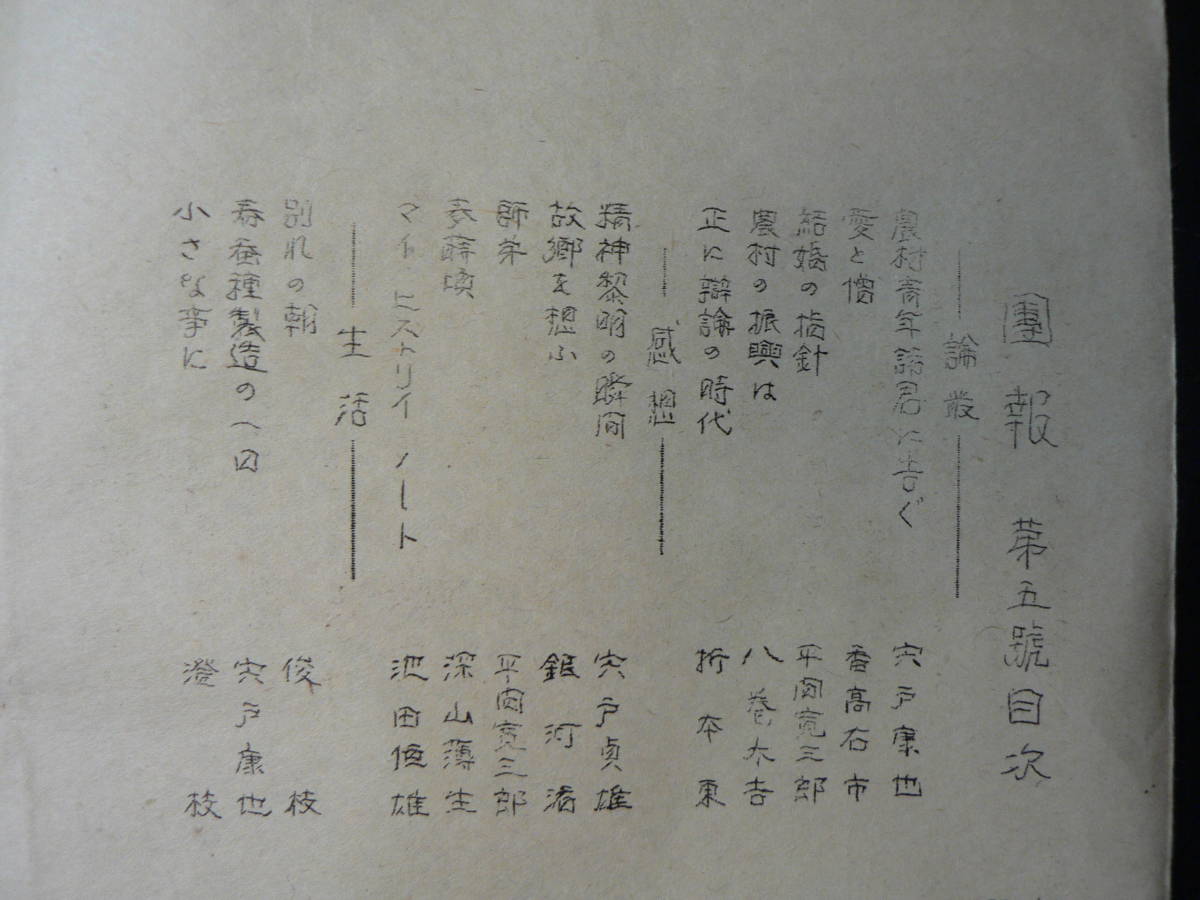 團報 第五號目次
論叢
農村青年諸君に告ぐ 宍戸康也
愛と僧 香高右市
結婚の指針 平間寛三郎
農村の振興は 八巻木吉
正に辯論の時代 折本東
感想
精神黎明の瞬间 宍戸貞雄
故郷を想ふ 銀河
師弟 平間寛三郎
深山薄生
マイ・ヒストリイ ノート 池田恒雄
生活
別れの朝 俊枝
春蚕種製造の 宍戸康也
小さな事に 澄枝